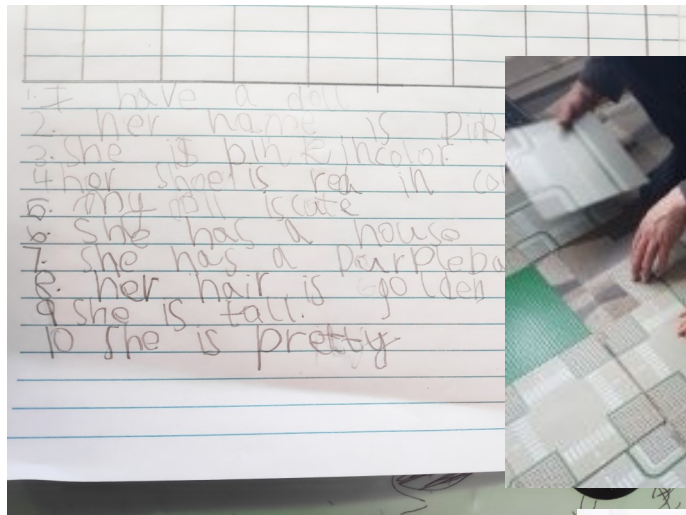 1. I have a doll
2. her name is pink
3. She is pink incolor.
4 her shoe is red in
5. my doll iscute
6. She has a house
7. She has a
8. her hair is golden
9 she is tall.
10 She is pretty